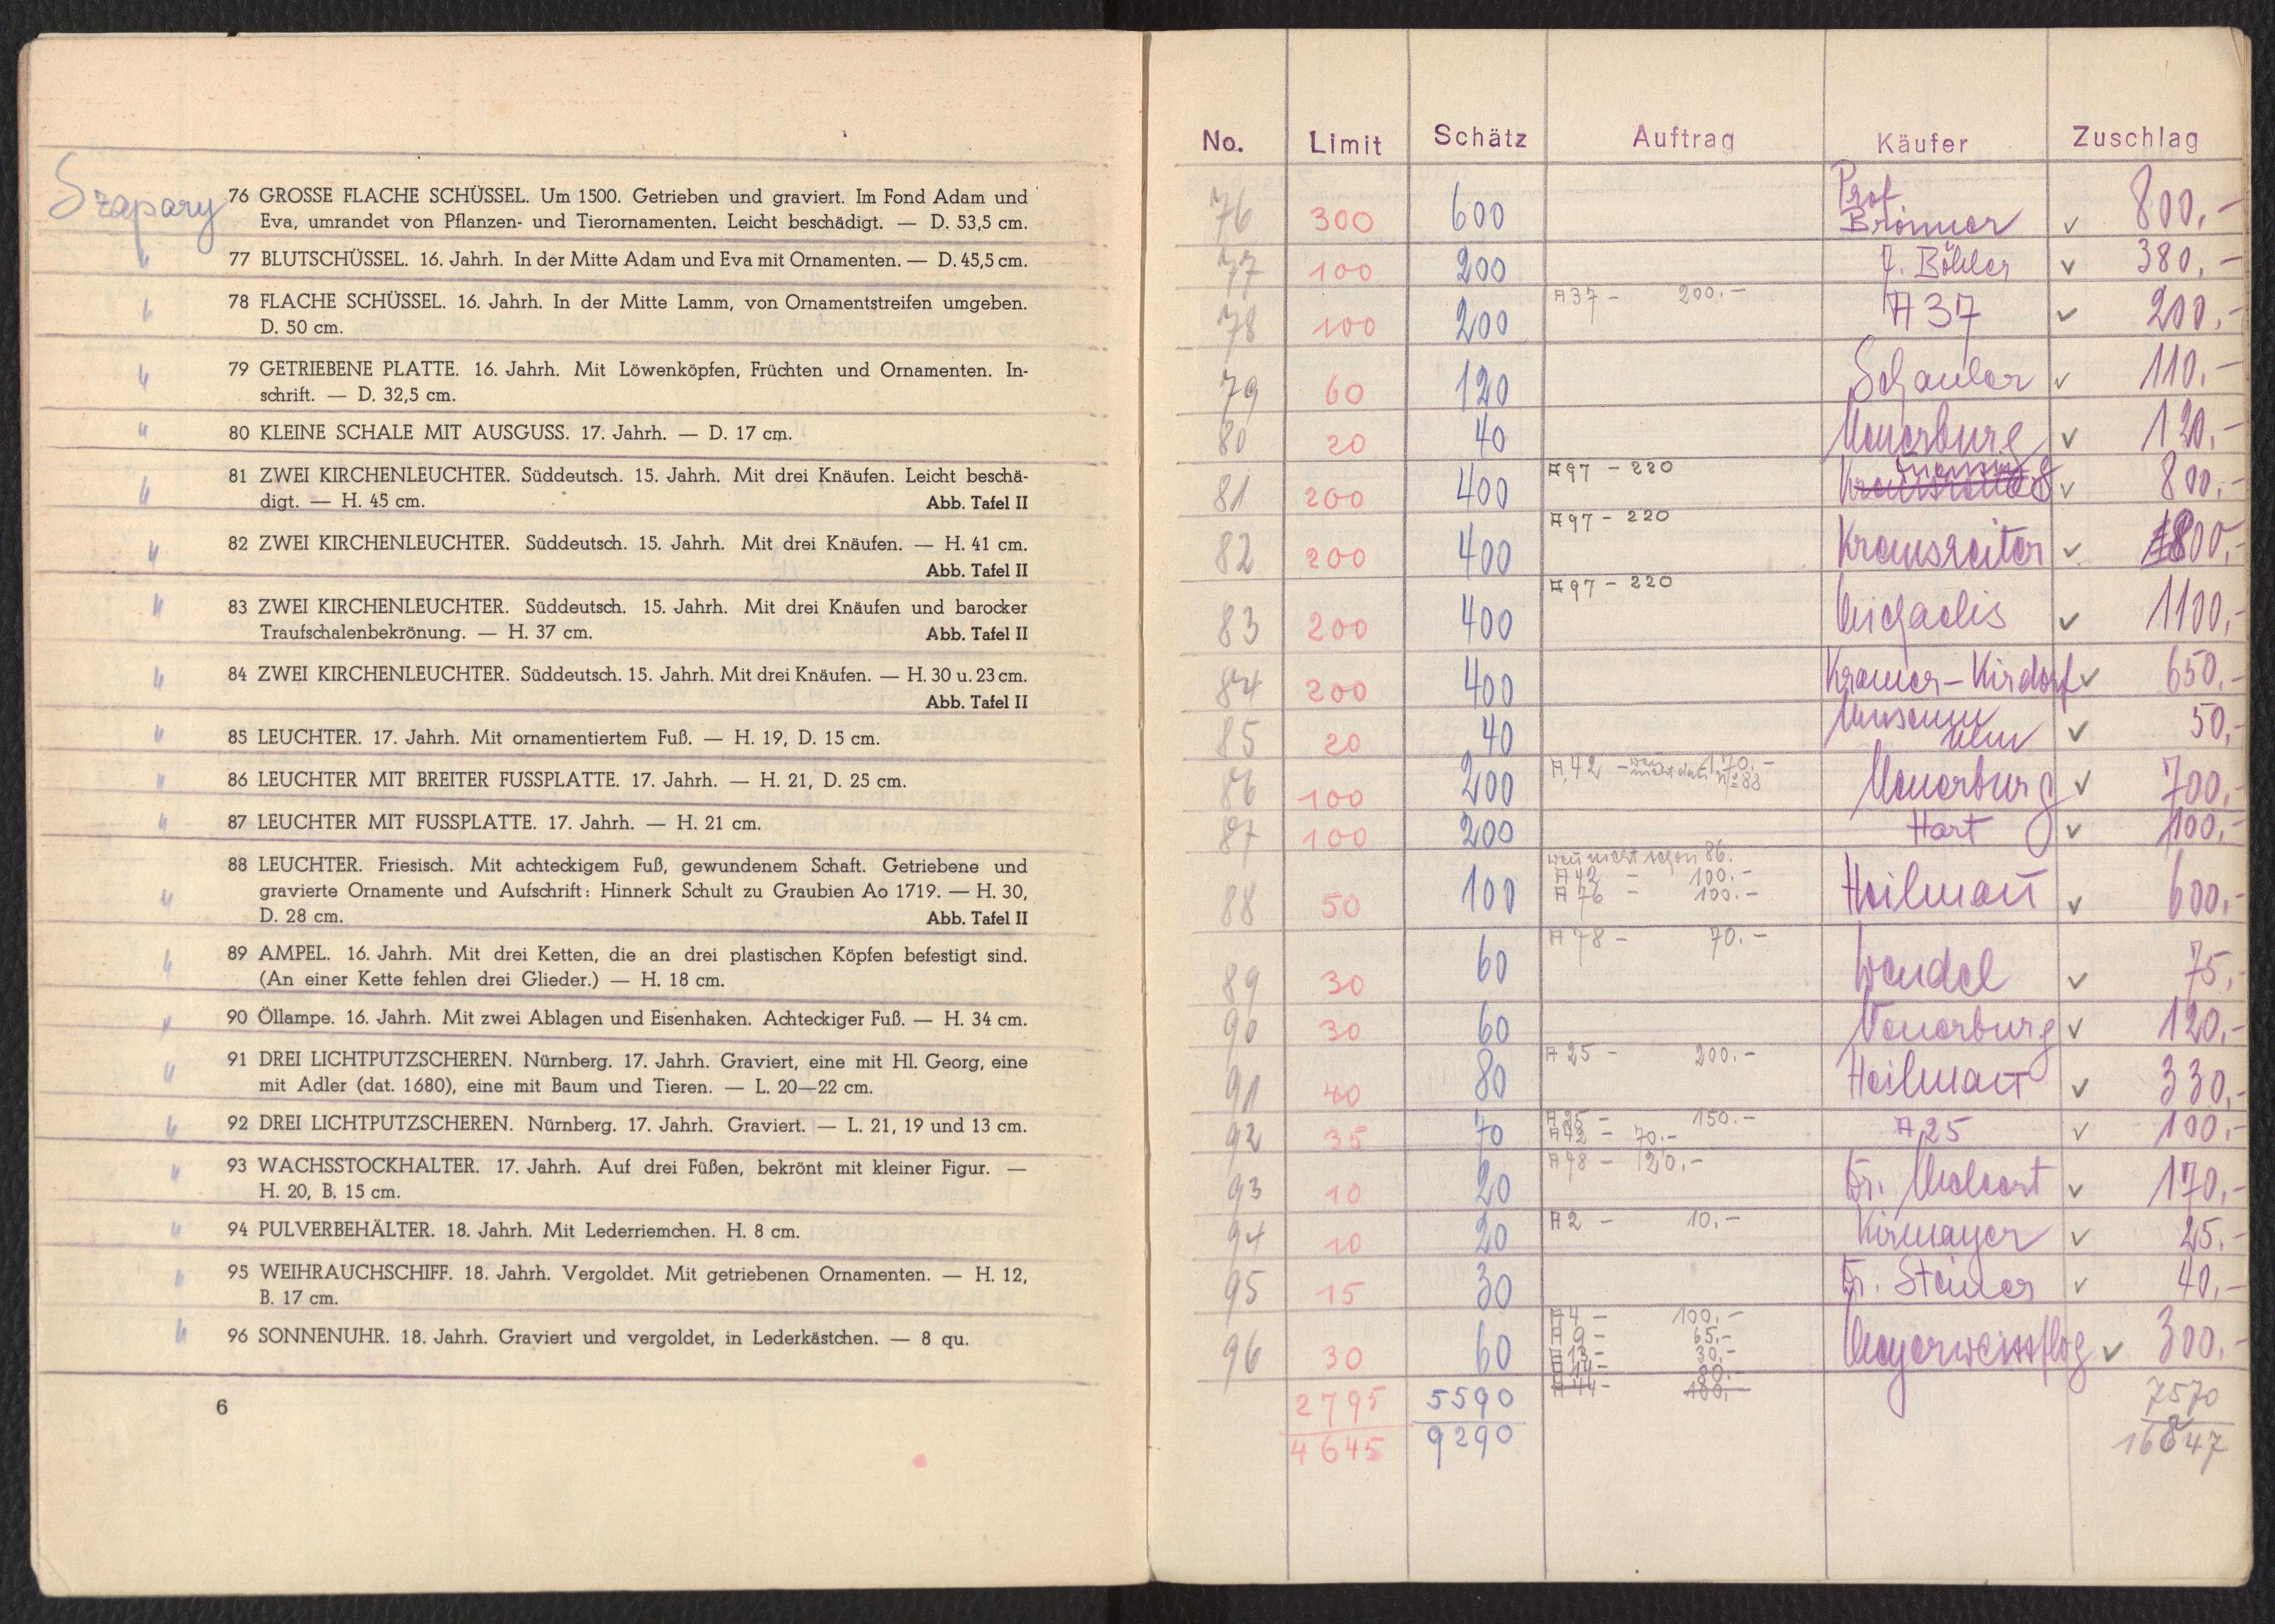 Szapary
76 GROSSE FLACHE SCHÜSSEL. Um 1500. Getrieben und graviert. Im Fond Adam und
Eva, umrandet von Pflanzen- und Tierornamenten. Leicht beschädigt. — D. 53,5 cm.
" 77 BLUTSCHÜSSEL. 16. Jahrh. In der Mitte Adam und Eva mit Ornamenten. — D. 45,5 cm.
" 78 FLACHE SCHÜSSEL. 16. Jahrh. In der Mitte Lamm, von Ornamentstreifen umgeben.
D. 50 cm.
" 79 GETRIEBENE PLATTE. 16. Jahrh. Mit Löwenköpfen, Früchten und Ornamenten. In-
schrift. — D. 32,5 cm.
" 80 KLEINE SCHALE MIT AUSGUSS. 17. Jahrh. — D. 17 cm.
" 81 ZWEI KIRCHENLEUCHTER. Süddeutsch. 15. Jahrh. Mit drei Knäufen. Leicht beschä-
digt. — H. 45 cm. Abb. Tafel II
" 82 ZWEI KIRCHENLEUCHTER. Süddeutsch. 15. Jahrh. Mit drei Knäufen. — H. 41 cm.
Abb. Tafel II
" 83 ZWEI KIRCHENLEUCHTER. Süddeutsch. 15. Jahrh. Mit drei Knäufen und barocker
Traufschalenbekrönung. — H. 37 cm. Abb. Tafel II
" 84 ZWEI KIRCHENLEUCHTER. Süddeutsch. 15. Jahrh. Mit drei Knäufen. — H. 30 u. 23 cm.
Abb. Tafel II
" 85 LEUCHTER. 17. Jahrh. Mit ornamentiertem Fuß. — H. 19, D. 15 cm.
" 86 LEUCHTER MIT BREITER FUSSPLATTE. 17. Jahrh. — H. 21, D. 25 cm.
" 87 LEUCHTER MIT FUSSPLATTE. 17. Jahrh. — H. 21 cm.
88 LEUCHTER. Friesisch. Mit achteckigem Fuß, gewundenem Schaft. Getriebene und
" gravierte Ornamente und Aufschrift: Hinnerk Schult zu Graubien Ao 1719. — H. 30,
D. 28 cm. Abb. Tafel II
" 89 AMPEL. 16. Jahrh. Mit drei Ketten, die an drei plastischen Köpfen befestigt sind.
(An einer Kette fehlen drei Glieder.) — H. 18 cm.
" 90 Öllampe. 16. Jahrh. Mit zwei Ablagen und Eisenhaken. Achteckiger Fuß. — H. 34 cm.
" 91 DREI LICHTPUTZSCHEREN. Nürnberg. 17. Jahrh. Graviert, eine mit Hl. Georg, eine
mit Adler (dat. 1680), eine mit Baum und Tieren. — L. 20—22 cm.
" 92 DREI LICHTPUTZSCHEREN. Nürnberg. 17. Jahrh. Graviert. — L. 21, 19 und 13 cm.
" 93 WACHSSTOCKHALTER. 17. Jahrh. Auf drei Füßen, bekrönt mit kleiner Figur. —
H. 20, B. 15 cm.
" 94 PULVERBEHÄLTER. 18. Jahrh. Mit Lederriemchen. H. 8 cm.
" 95 WEIHRAUCHSCHIFF. 18. Jahrh. Vergoldet. Mit getriebenen Ornamenten. — H. 12,
B. 17 cm.
" 96 SONNENUHR. 18. Jahrh. Graviert und vergoldet, in Lederkästchen. — 8 qu.
6
No. Limit Schätz Auftrag Käufer Zuschlag
76 300 600 Prof Brönner ✓ 800,-
77 100 200 J. Böhler ✓ 380,-
78 100 200 A37 - 200.- A 37 ✓ 200,-
79 60 120 ✓ 110.-
80 20 40 ✓ 120,-
81 200 400 A97 - 220 ✓ 800.-
82 200 400 A97 - 220 Kronsreiter ✓ 800,-
83 200 400 A97 - 220 Michaelis ✓ 1100,-
84 200 400 Kramer-Kirdorf ✓ 650.-
85 20 40 Museum ✓ 50,-
86 100 200 A 42 - 170.- Neuerburg ✓ 700,-
87 100 200 Hart ✓ 100,-
wenn nicht schon 86.
A 42 - 100.-
88 50 100 A 76 - 100.- Heilmann ✓ 600,-
89 30 60 A 78 - 70.- Wendel ✓ 75,-
90 30 60 Neuerburg ✓ 120,-
91 40 80 A 25 - 200.- Heilmann ✓ 330,-
A 25 - 150.-
92 35 70 A 42 - 70.- A 25 ✓ 100,-
93 10 20 A 98 - 120.- Dr. ✓ 170,-
94 10 20 A 2 - 10.- Kirmayer ✓ 25.-
95 15 30 Dr. Steiner ✓ 40,-
A 4 - 100.-
A 9 - 65.-
96 30 60 A 13 - 30.- Meyerweissflog ✓ 300.-
A 14 - 80.-
A 44 - 100.-
2795 5590 7570
4645 9290